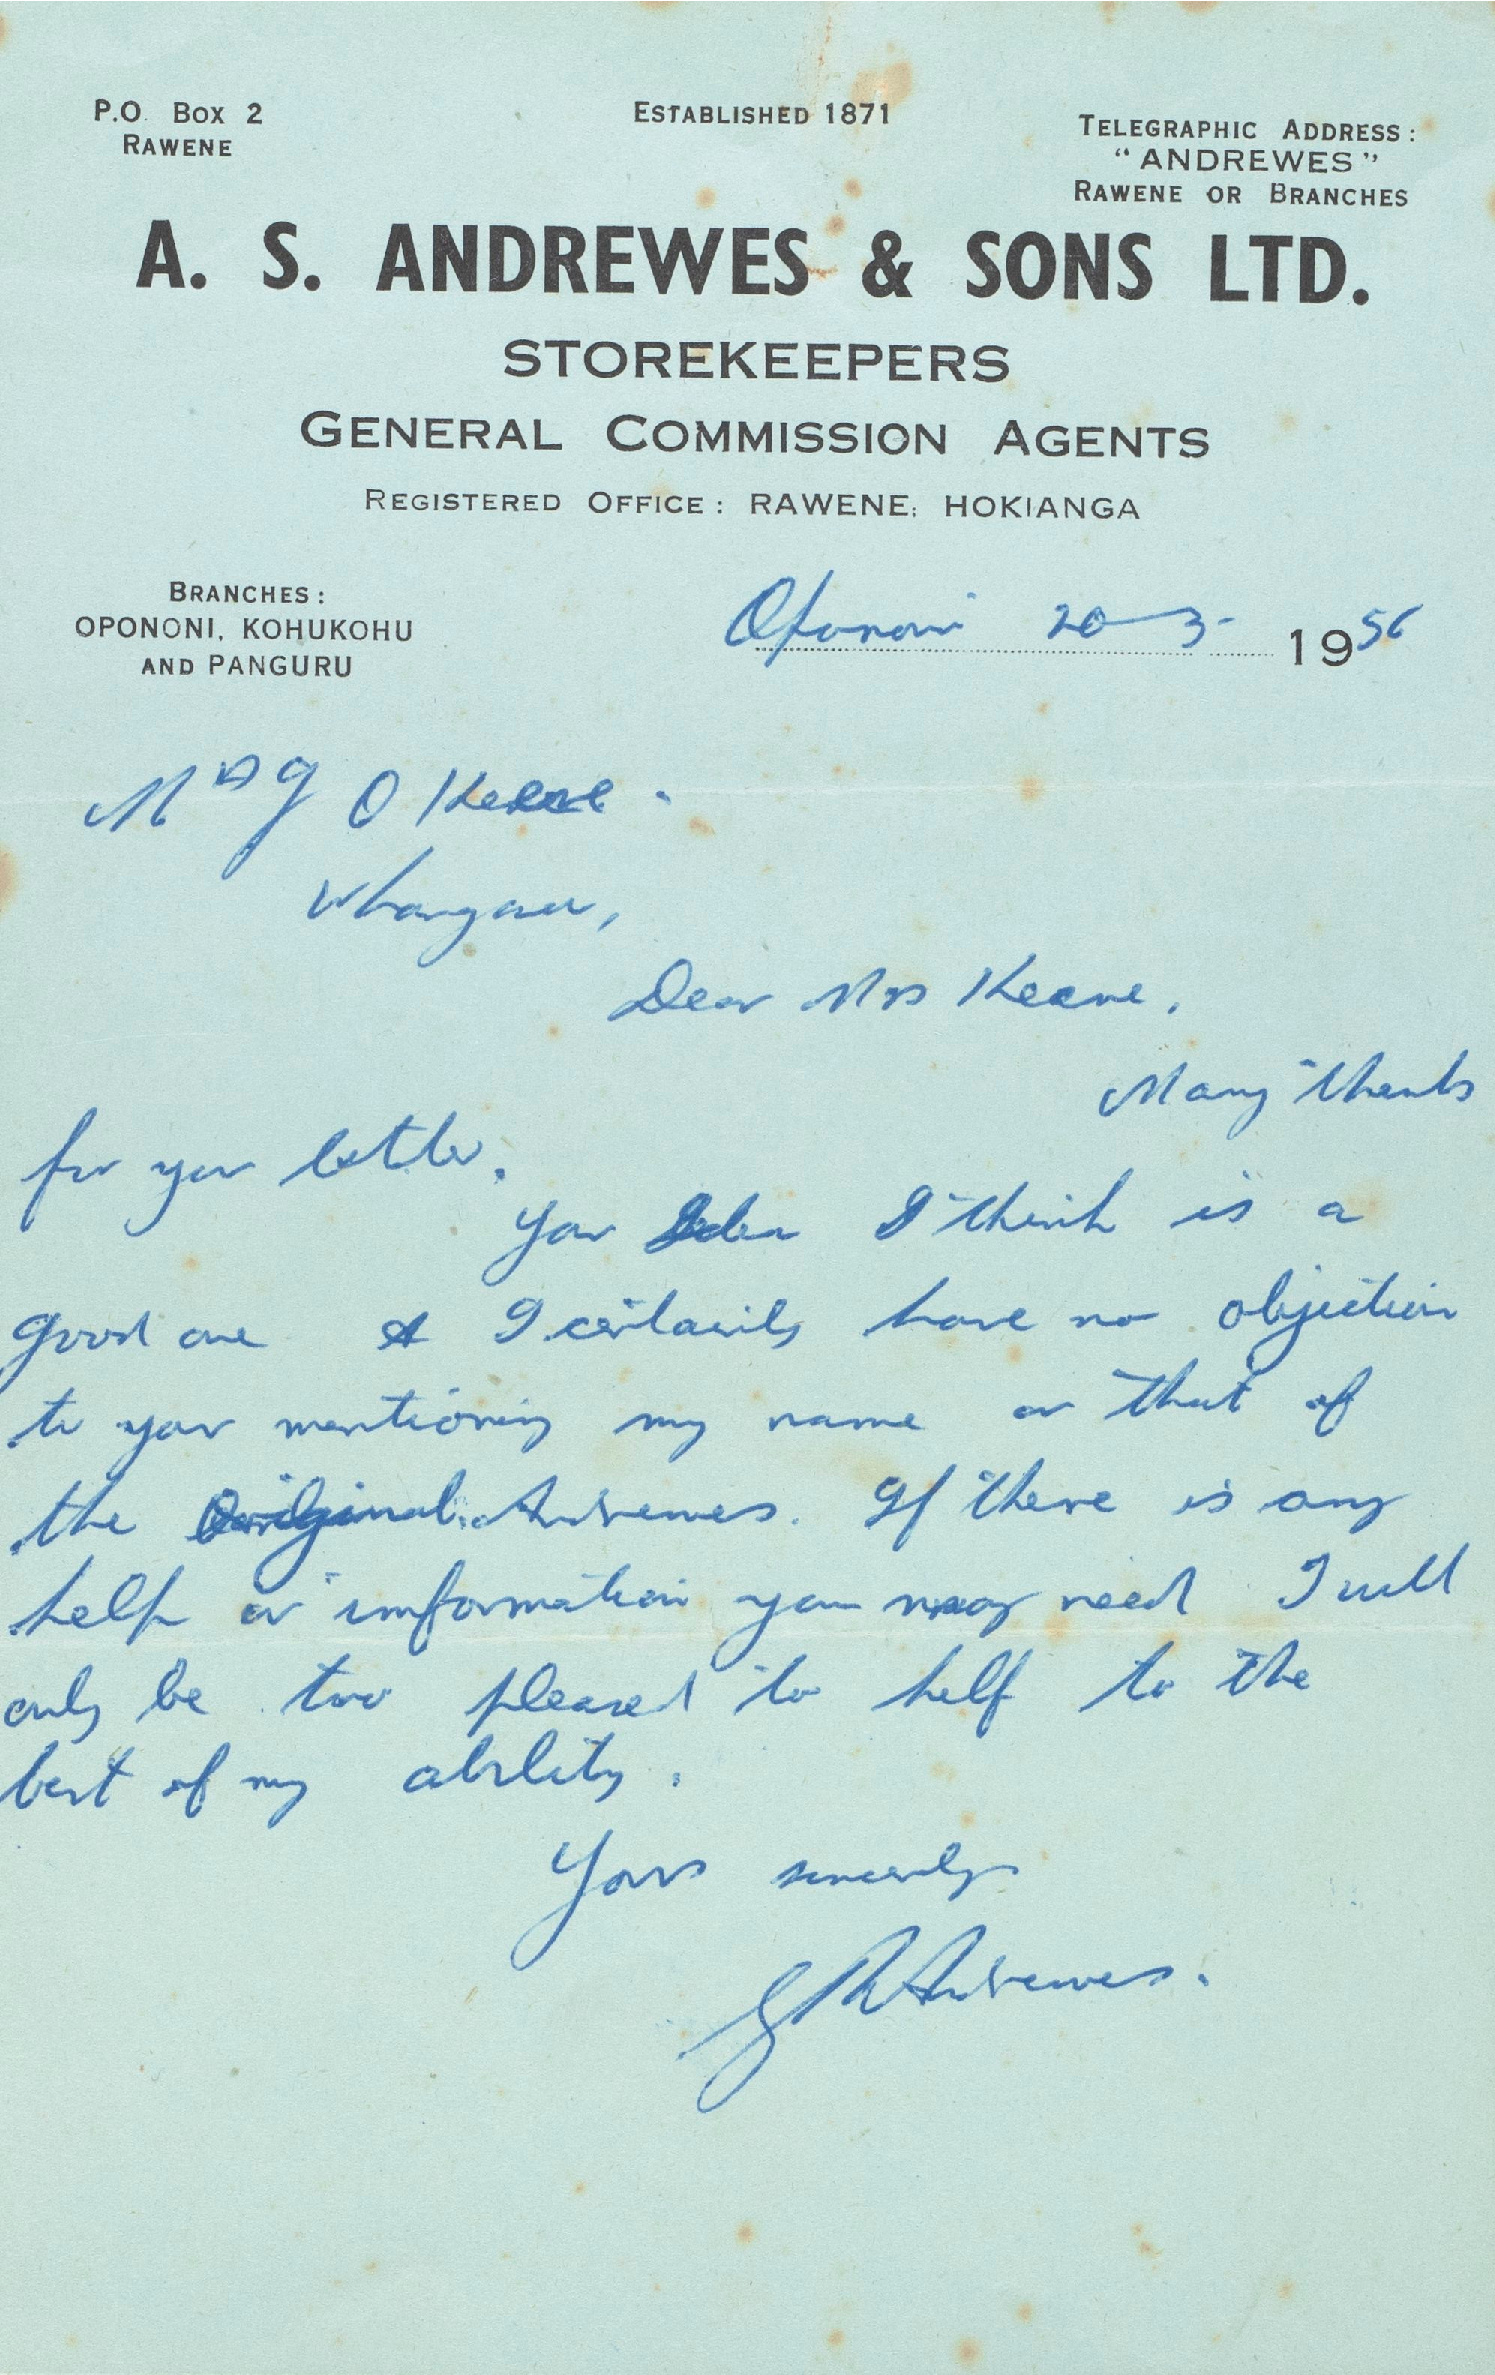 P.O. Box 2
RAWENE
ESTABLISHED 1871
TELEGRAPHIC ADDRESS:
"ANDREWES"
RAWENE OR BRANCHES
A. S. ANDREWES & SONS LTD.
STOREKEEPERS
GENERAL COMMISSION AGENTS
REGISTERED OFFICE: RAWENE, HOKIANGA
BRANCHES:
OPONONI, KOHUKOHU
AND PANGURU
Opononi 20-3- 1956
Mrs J O Keene.
Whangarei,
Dear Mrs Keene,
Many thanks
for your letter.
Your Idea I think is a
good one & I certainly have no objection
to your mentioning my name or that of
the Original Andrewes. If there is any
help or information you may need I will
only be too pleased to help to the
best of my ability.
Yours sincerely
Andrewes.